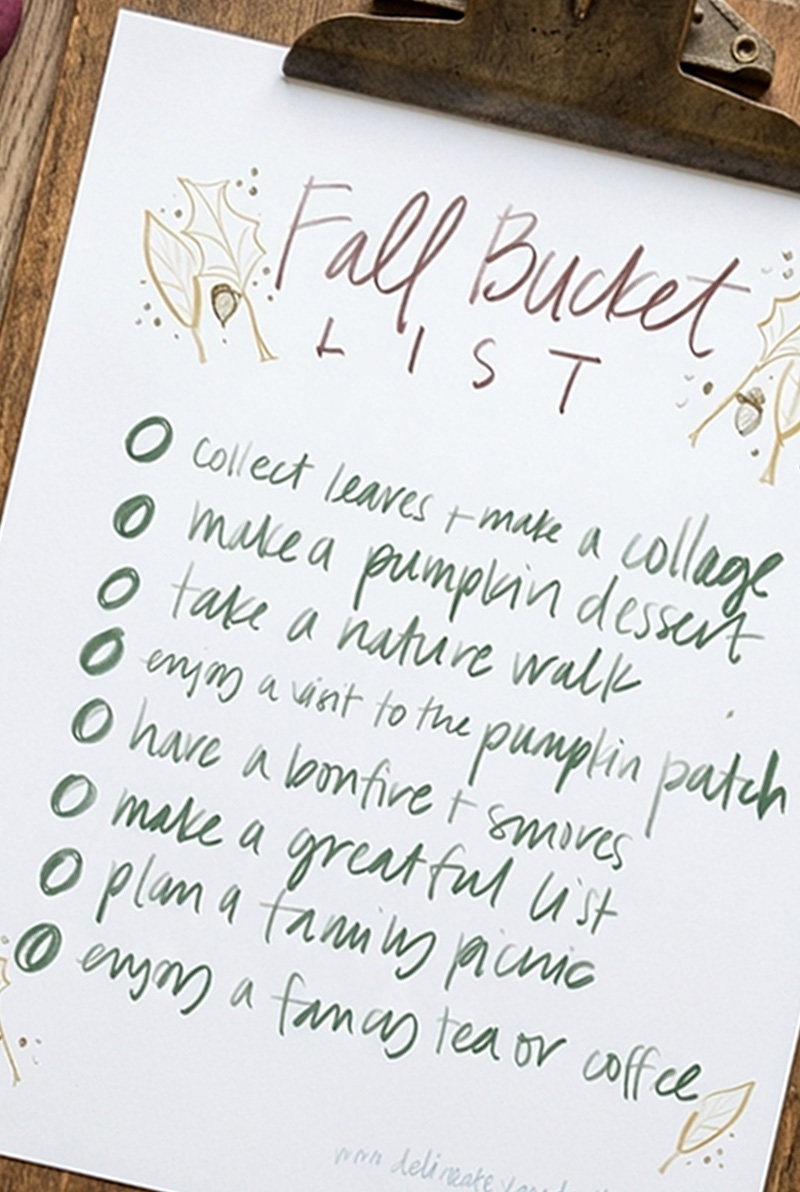 Fall Bucket
LIST
collect leaves + make a collage
make a pumpkin dessert
take a nature walk
enjoy a visit to the pumpkin patch
have a bonfire + smores
make a greatful list
plan a family picnic
enjoy a fancy tea or coffee